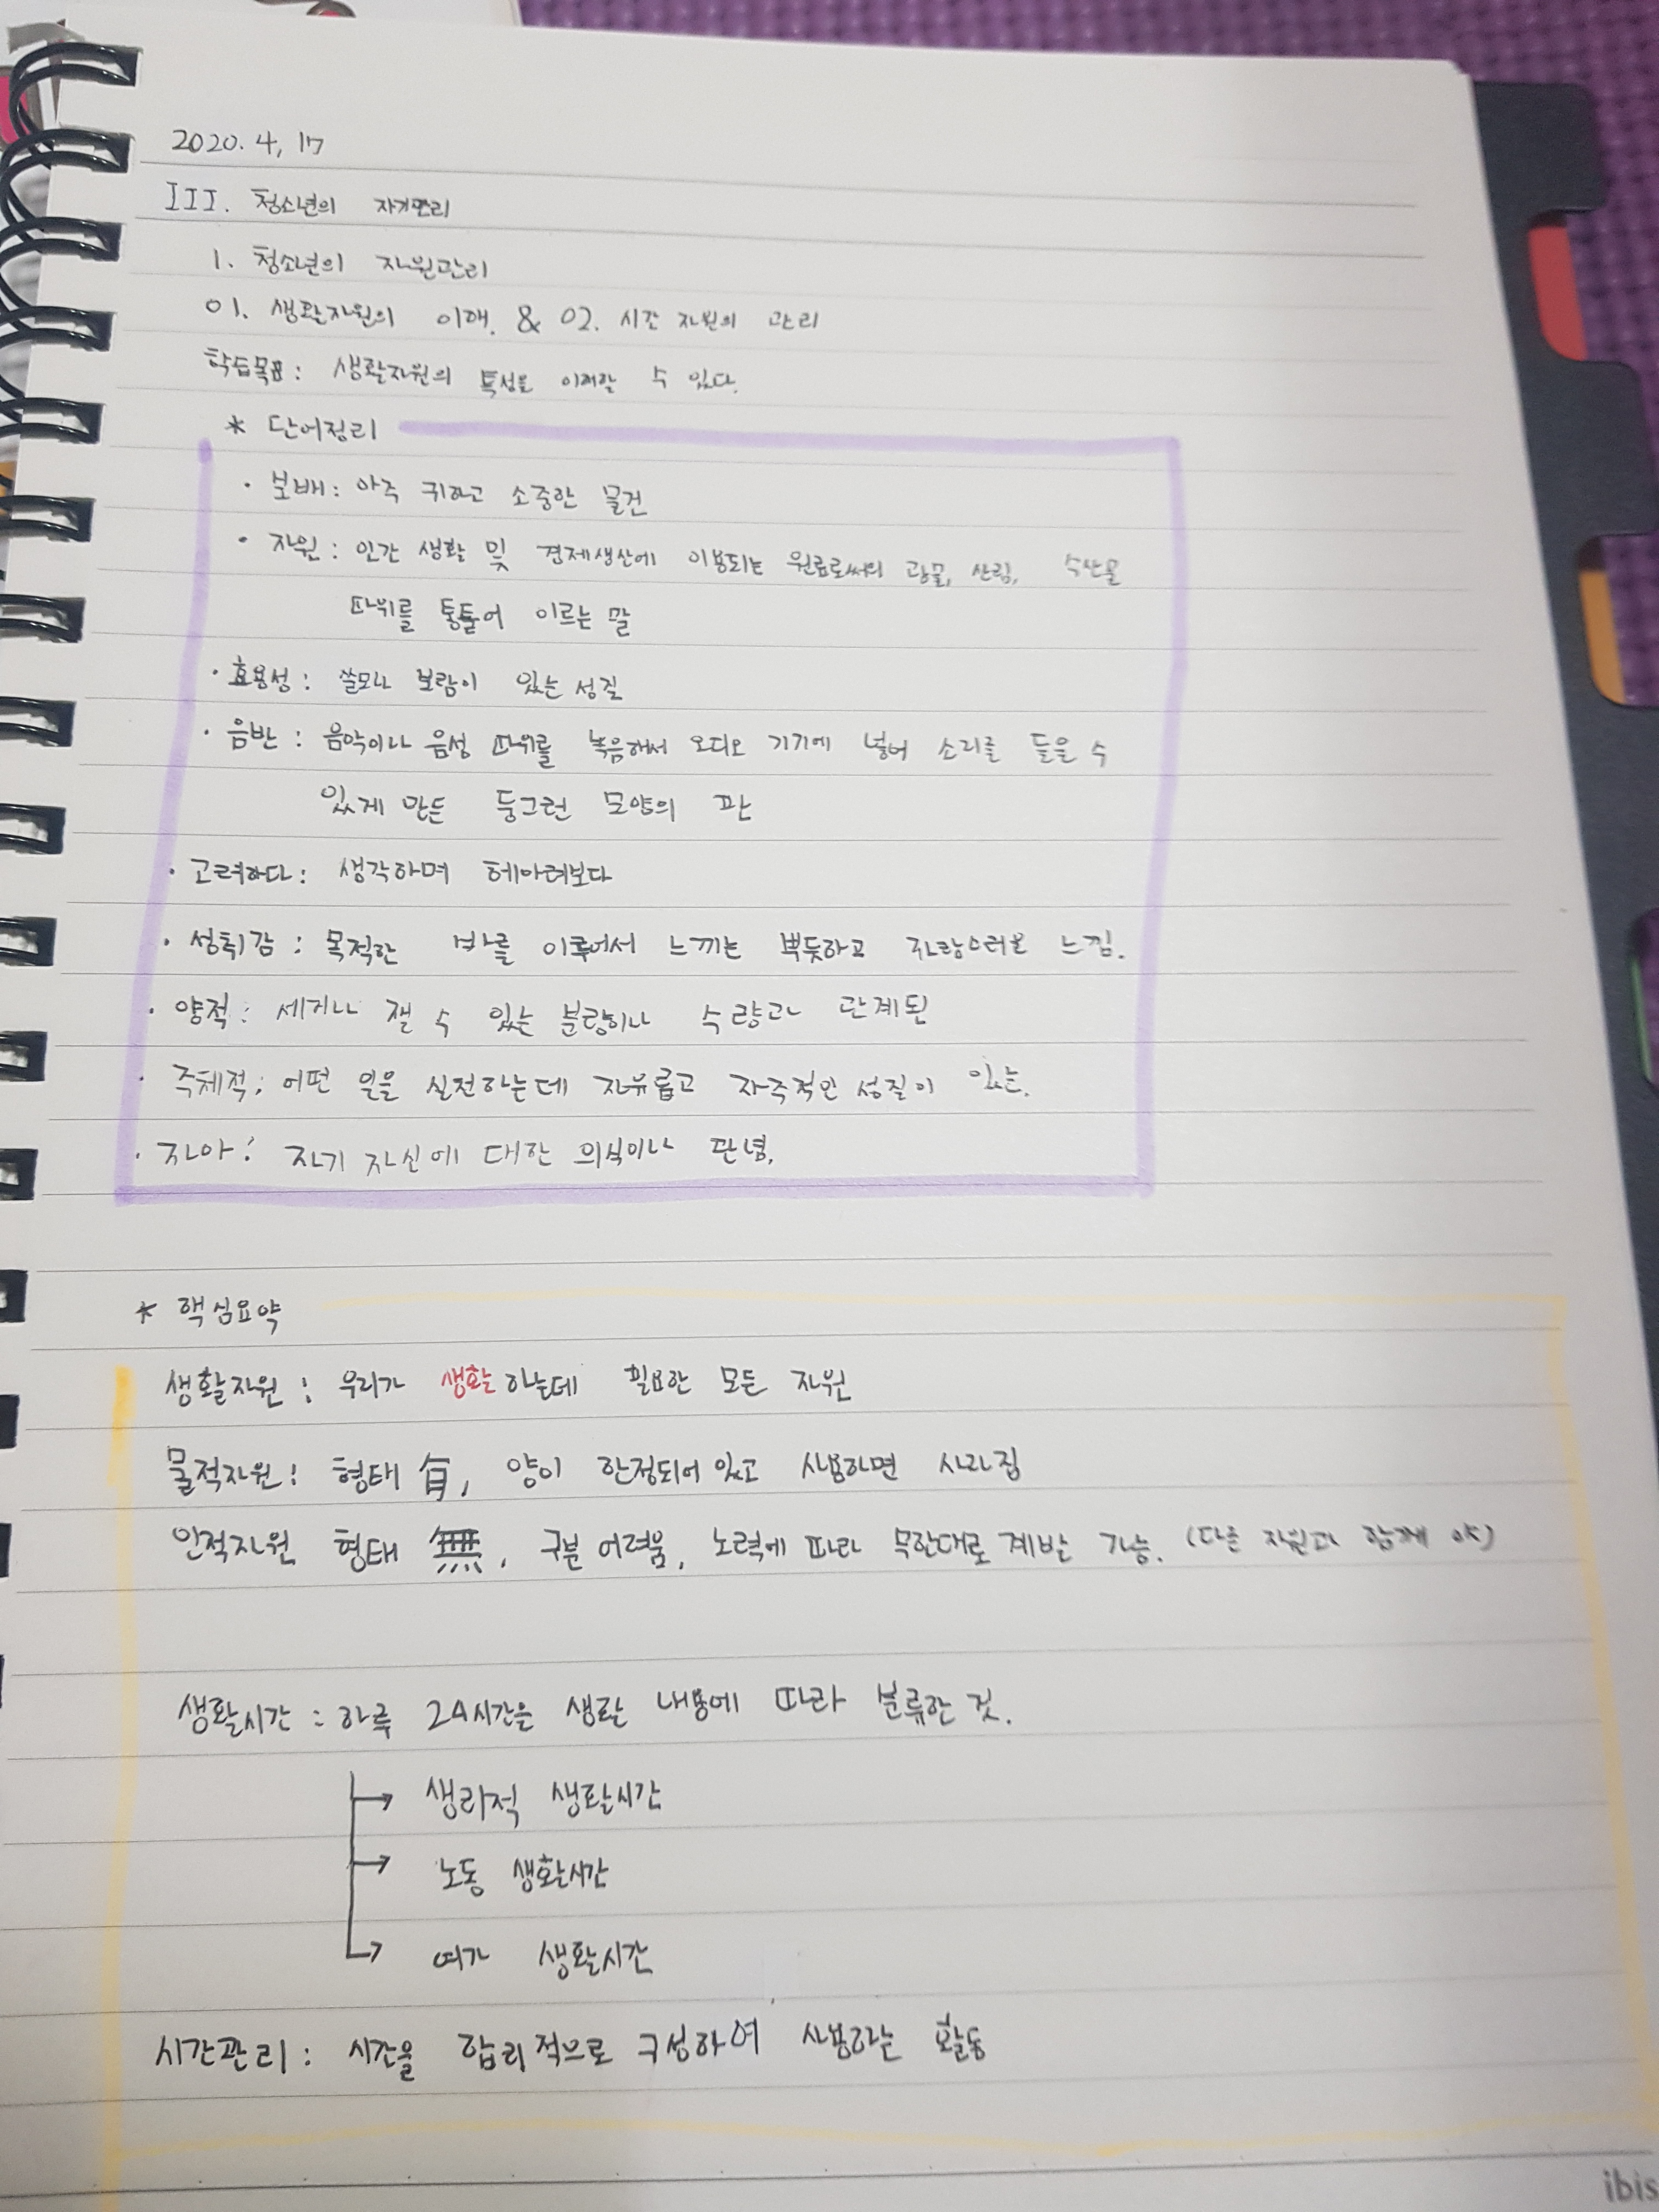 2020. 4, 17
III. 청소년의 자기관리
1. 청소년의 자원관리
01. 생활자원의 이해. & 02. 시간 자원의 관리
학습목표: 생활자원의 특성을 이해할 수 있다.
* 단어정리
· 보배: 아주 귀하고 소중한 물건
· 자원: 인간 생활 및 경제생산에 이용되는 원료로써의 광물, 산림, 수산물
따위를 통틀어 이르는 말
· 효용성: 쓸모나 보람이 있는 성질
· 음반: 음악이나 음성 따위를 녹음해서 오디오 기기에 넣어 소리를 들을 수
있게 만든 둥그런 모양의 판
· 고려하다: 생각하며 헤아려보다
· 성취감: 목적한 바를 이루어서 느끼는 뿌듯하고 자랑스러운 느낌.
· 양적: 세거나 잴 수 있는 분량이나 수량과 관계된
· 주체적: 어떤 일을 실천하는데 자유롭고 자주적인 성질이 있는.
· 자아: 자기 자신에 대한 의식이나 관념.
* 핵심요약
생활자원: 우리가 생활하는데 필요한 모든 자원
물적자원: 형태 有, 양이 한정되어있고 사용하면 사라짐
인적자원 형태 無, 구분 어려움, 노력에 따라 무한대로 계발 가능. (다른 자원과 함께)
생활시간: 하루 24시간을 생활 내용에 따라 분류한 것.
→ 생리적 생활시간
→ 노동 생활시간
→ 여가 생활시간
시간관리: 시간을 합리적으로 구성하여 사용하는 활동
ibis